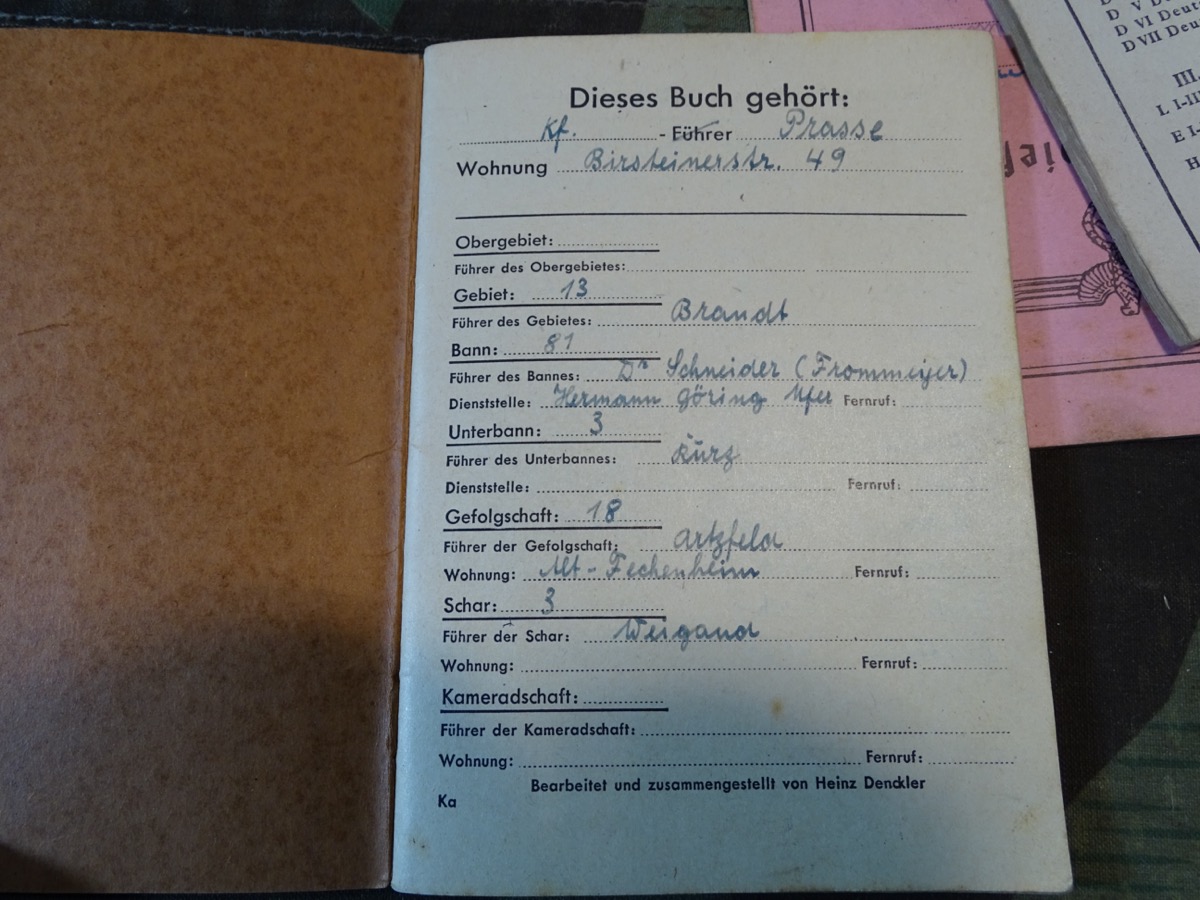 Dieses Buch gehört:
Kf. - Führer Prasse
Wohnung Birsteinerstr. 49
Obergebiet:
Führer des Obergebietes:
Gebiet: 13
Führer des Gebietes: Brandt
Bann: 81
Führer des Bannes: Dr Schneider (Frommeijer)
Dienststelle: Hermann Göring Ufer Fernruf:
Unterbann: 3
Führer des Unterbannes: Kurz
Dienststelle: Fernruf:
Gefolgschaft: 18
Führer der Gefolgschaft: Artzfeld
Wohnung: Alt-Fechenheim Fernruf:
Schar: 3
Führer der Schar: Weigand
Wohnung: Fernruf:
Kameradschaft:
Führer der Kameradschaft:
Wohnung: Fernruf:
Bearbeitet und zusammengestellt von Heinz Denckler
Ka
D V
D VI Deut
D VII Deu
III.
L I-II
E I-
H